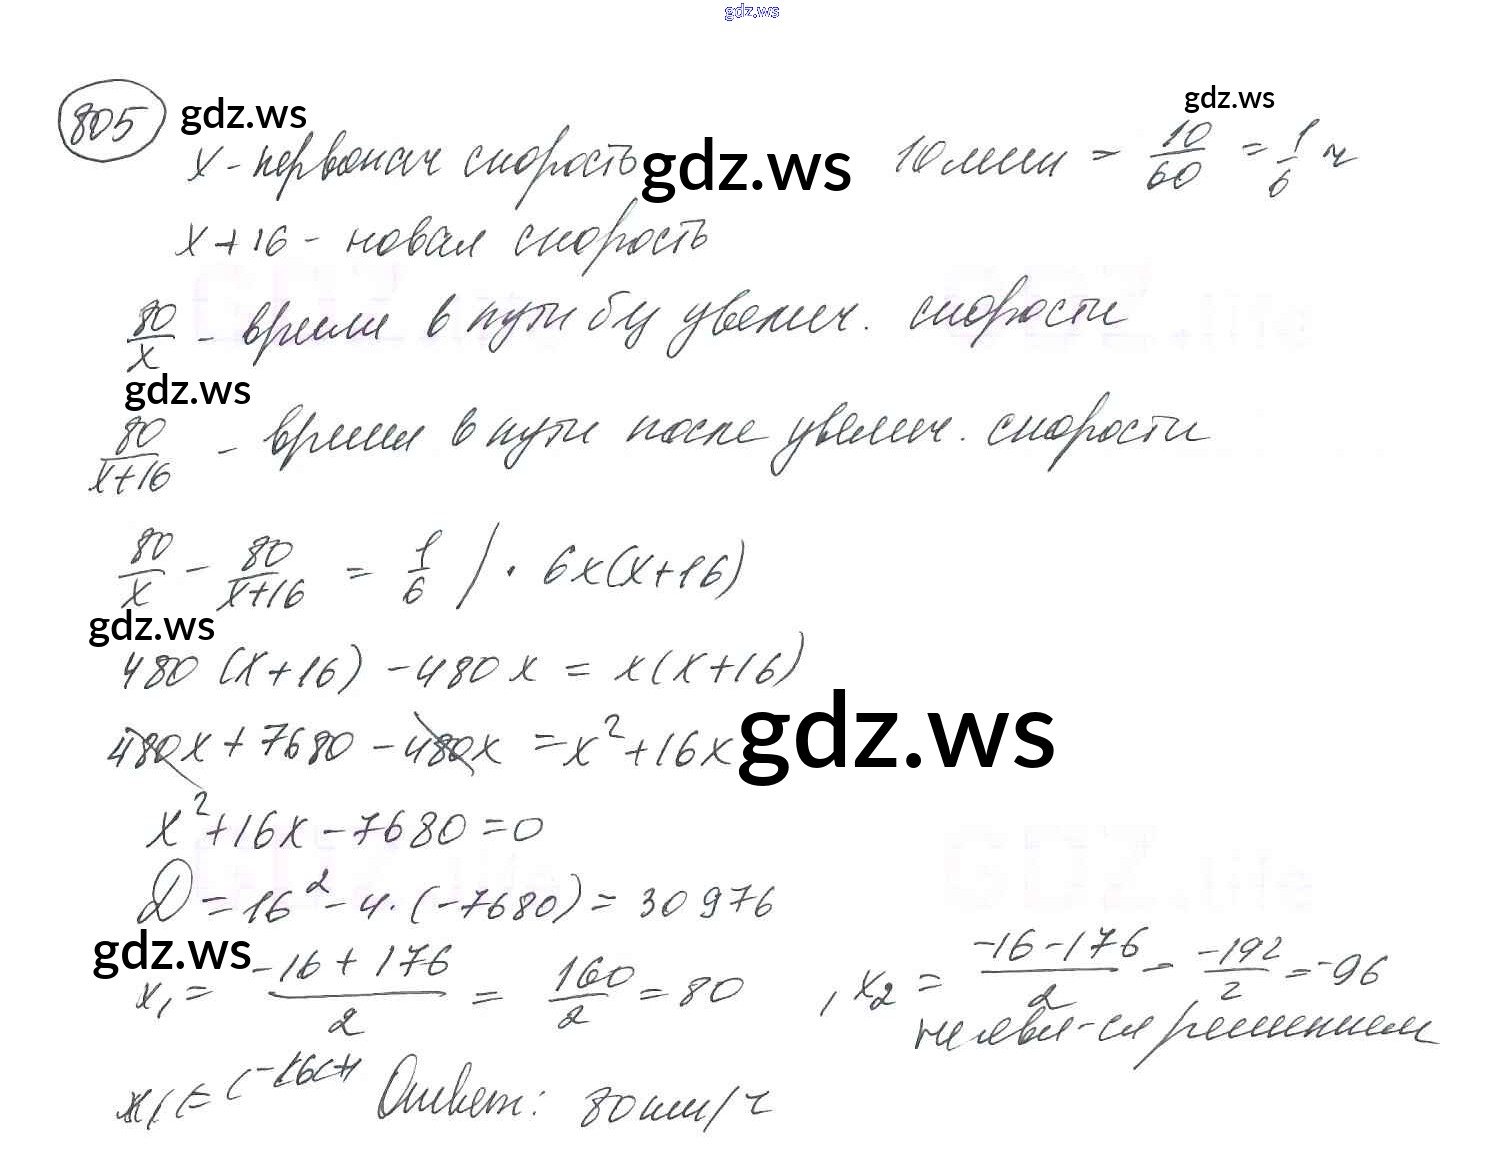 gdz.ws
805 gdz.ws gdz.ws
x - первонач скорость gdz.ws 10 мин = 10/60 = 1/6 ч
x + 16 - новая скорость
80/x - время в пути без увелич. скорости
gdz.ws
80/(x+16) - время в пути после увелич. скорости
80/x - 80/(x+16) = 1/6 / · 6x(x+16)
gdz.ws
480 (x+16) - 480x = x(x+16)
480x + 7680 - 480x = x²+16x gdz.ws
x²+16x - 7680 = 0
D = 16² - 4·(-7680) = 30976
gdz.ws
x₁ = (-16 + 176)/2 = 160/2 = 80 , x₂ = (-16 - 176)/2 = -192/2 = -96
не явл-ся решением
Ответ: 80 км/ч